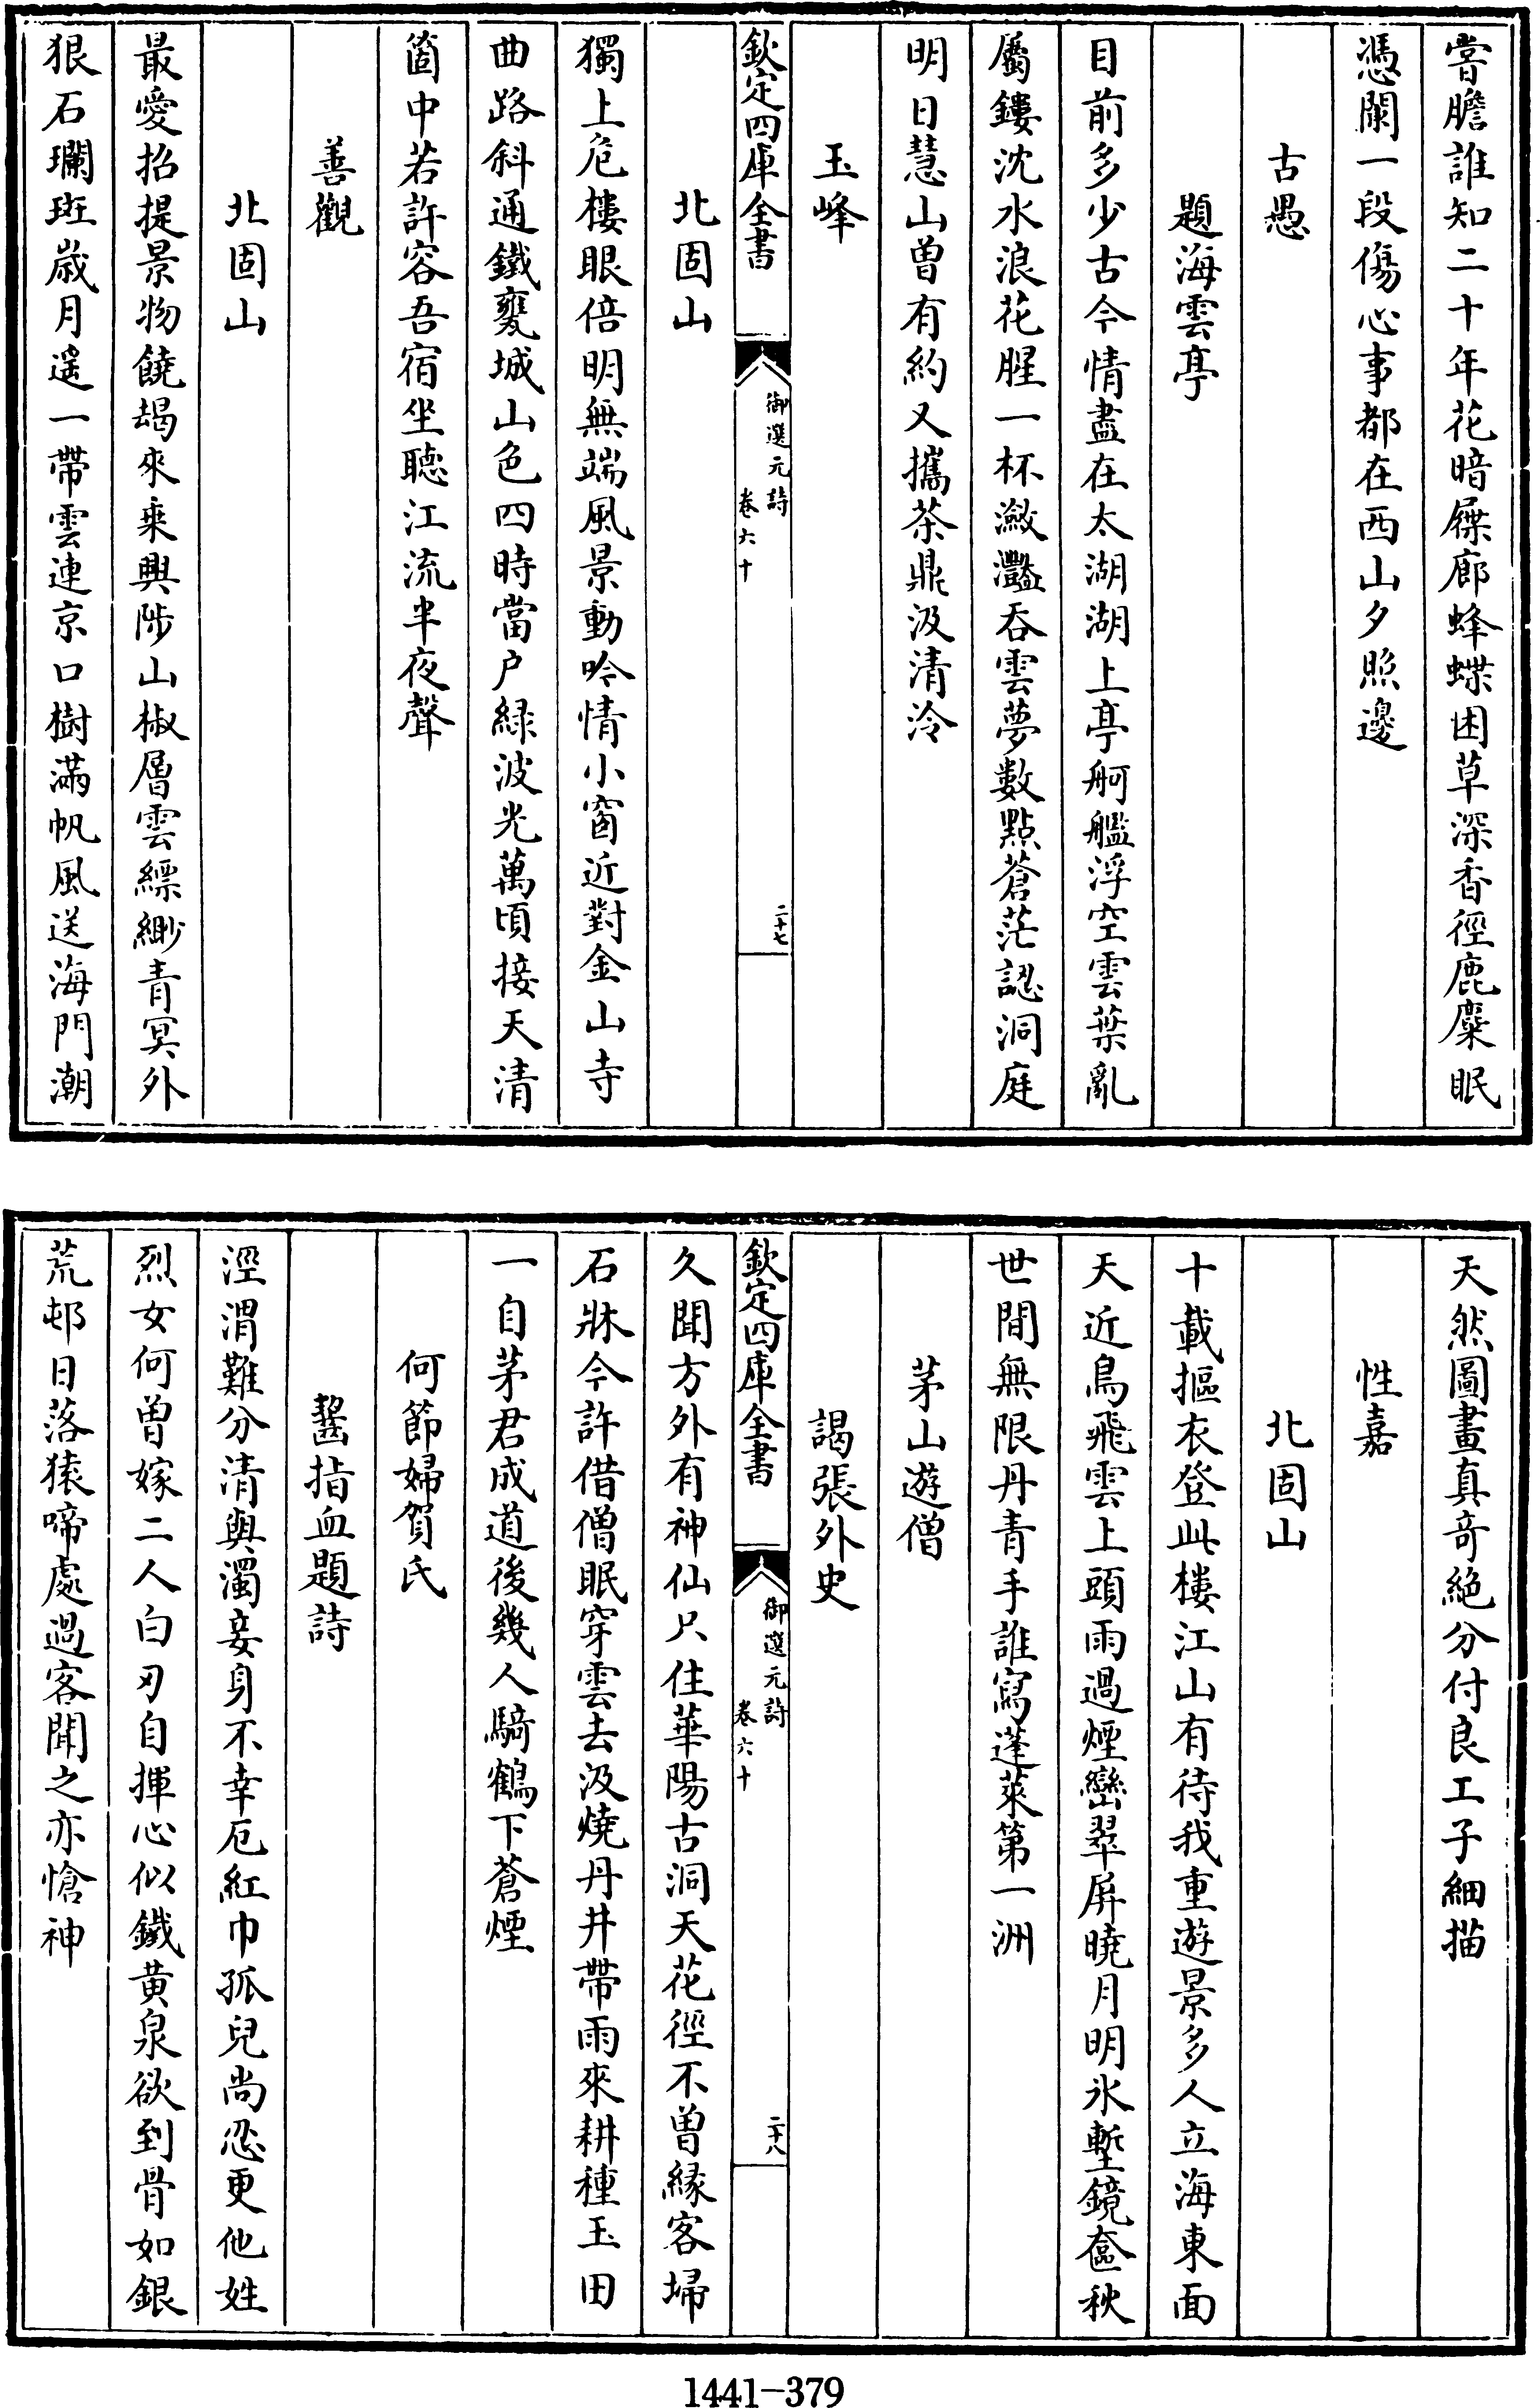 嘗膽誰知二十年花暗屧廊蜂蝶困草深香徑鹿麋眠
憑闌一段傷心事都在西山夕照邊
古愚
題海雲亭
目前多少古今情盡在太湖湖上亭舸艦浮空雲葉亂
屬鏤沈水浪花腥一杯瀲灩吞雲夢數點蒼茫認洞庭
明日慧山曽有約又攜茶鼎汲清泠
玉峰
欽定四庫全書
御選元詩
卷六十
二十七
北固山
獨上危樓眼倍明無端風景動吟情小窗近對金山寺
曲路斜通鐵甕城山色四時當户緑波光萬頃接天清
箇中若許容吾宿坐聽江流半夜聲
善觀
北固山
最愛招提景物饒朅來乗興陟山椒層雲縹緲青冥外
狠石斓斑歲月遙一帶雲連京口樹滿帆風送海門潮
天然圖畫真竒絶分付良工子細描
性嘉
北固山
十載摳衣登此樓江山有待我重遊景多人立海東面
天近鳥飛雲上頭雨過煙巒翠屏曉月明氷塹鏡奩秋
世間無限丹青手誰寫蓬萊第一洲
茅山遊僧
謁張外史
欽定四庫全書
御選元詩
卷六十
二十八
久聞方外有神仙只住華陽古洞天花徑不曽緣客埽
石牀今許借僧眠穿雲去汲燒丹井帶雨來耕種玉田
一自茅君成道後幾人騎鶴下蒼煙
何節婦賀氏
齧指血題詩
涇渭難分清與濁妾身不幸厄紅巾孤兒尚忍更他姓
烈女何曽嫁二人白刃自揮心似鐵黄泉欲到骨如銀
荒邨日落猿啼處過客聞之亦愴神
1441-379